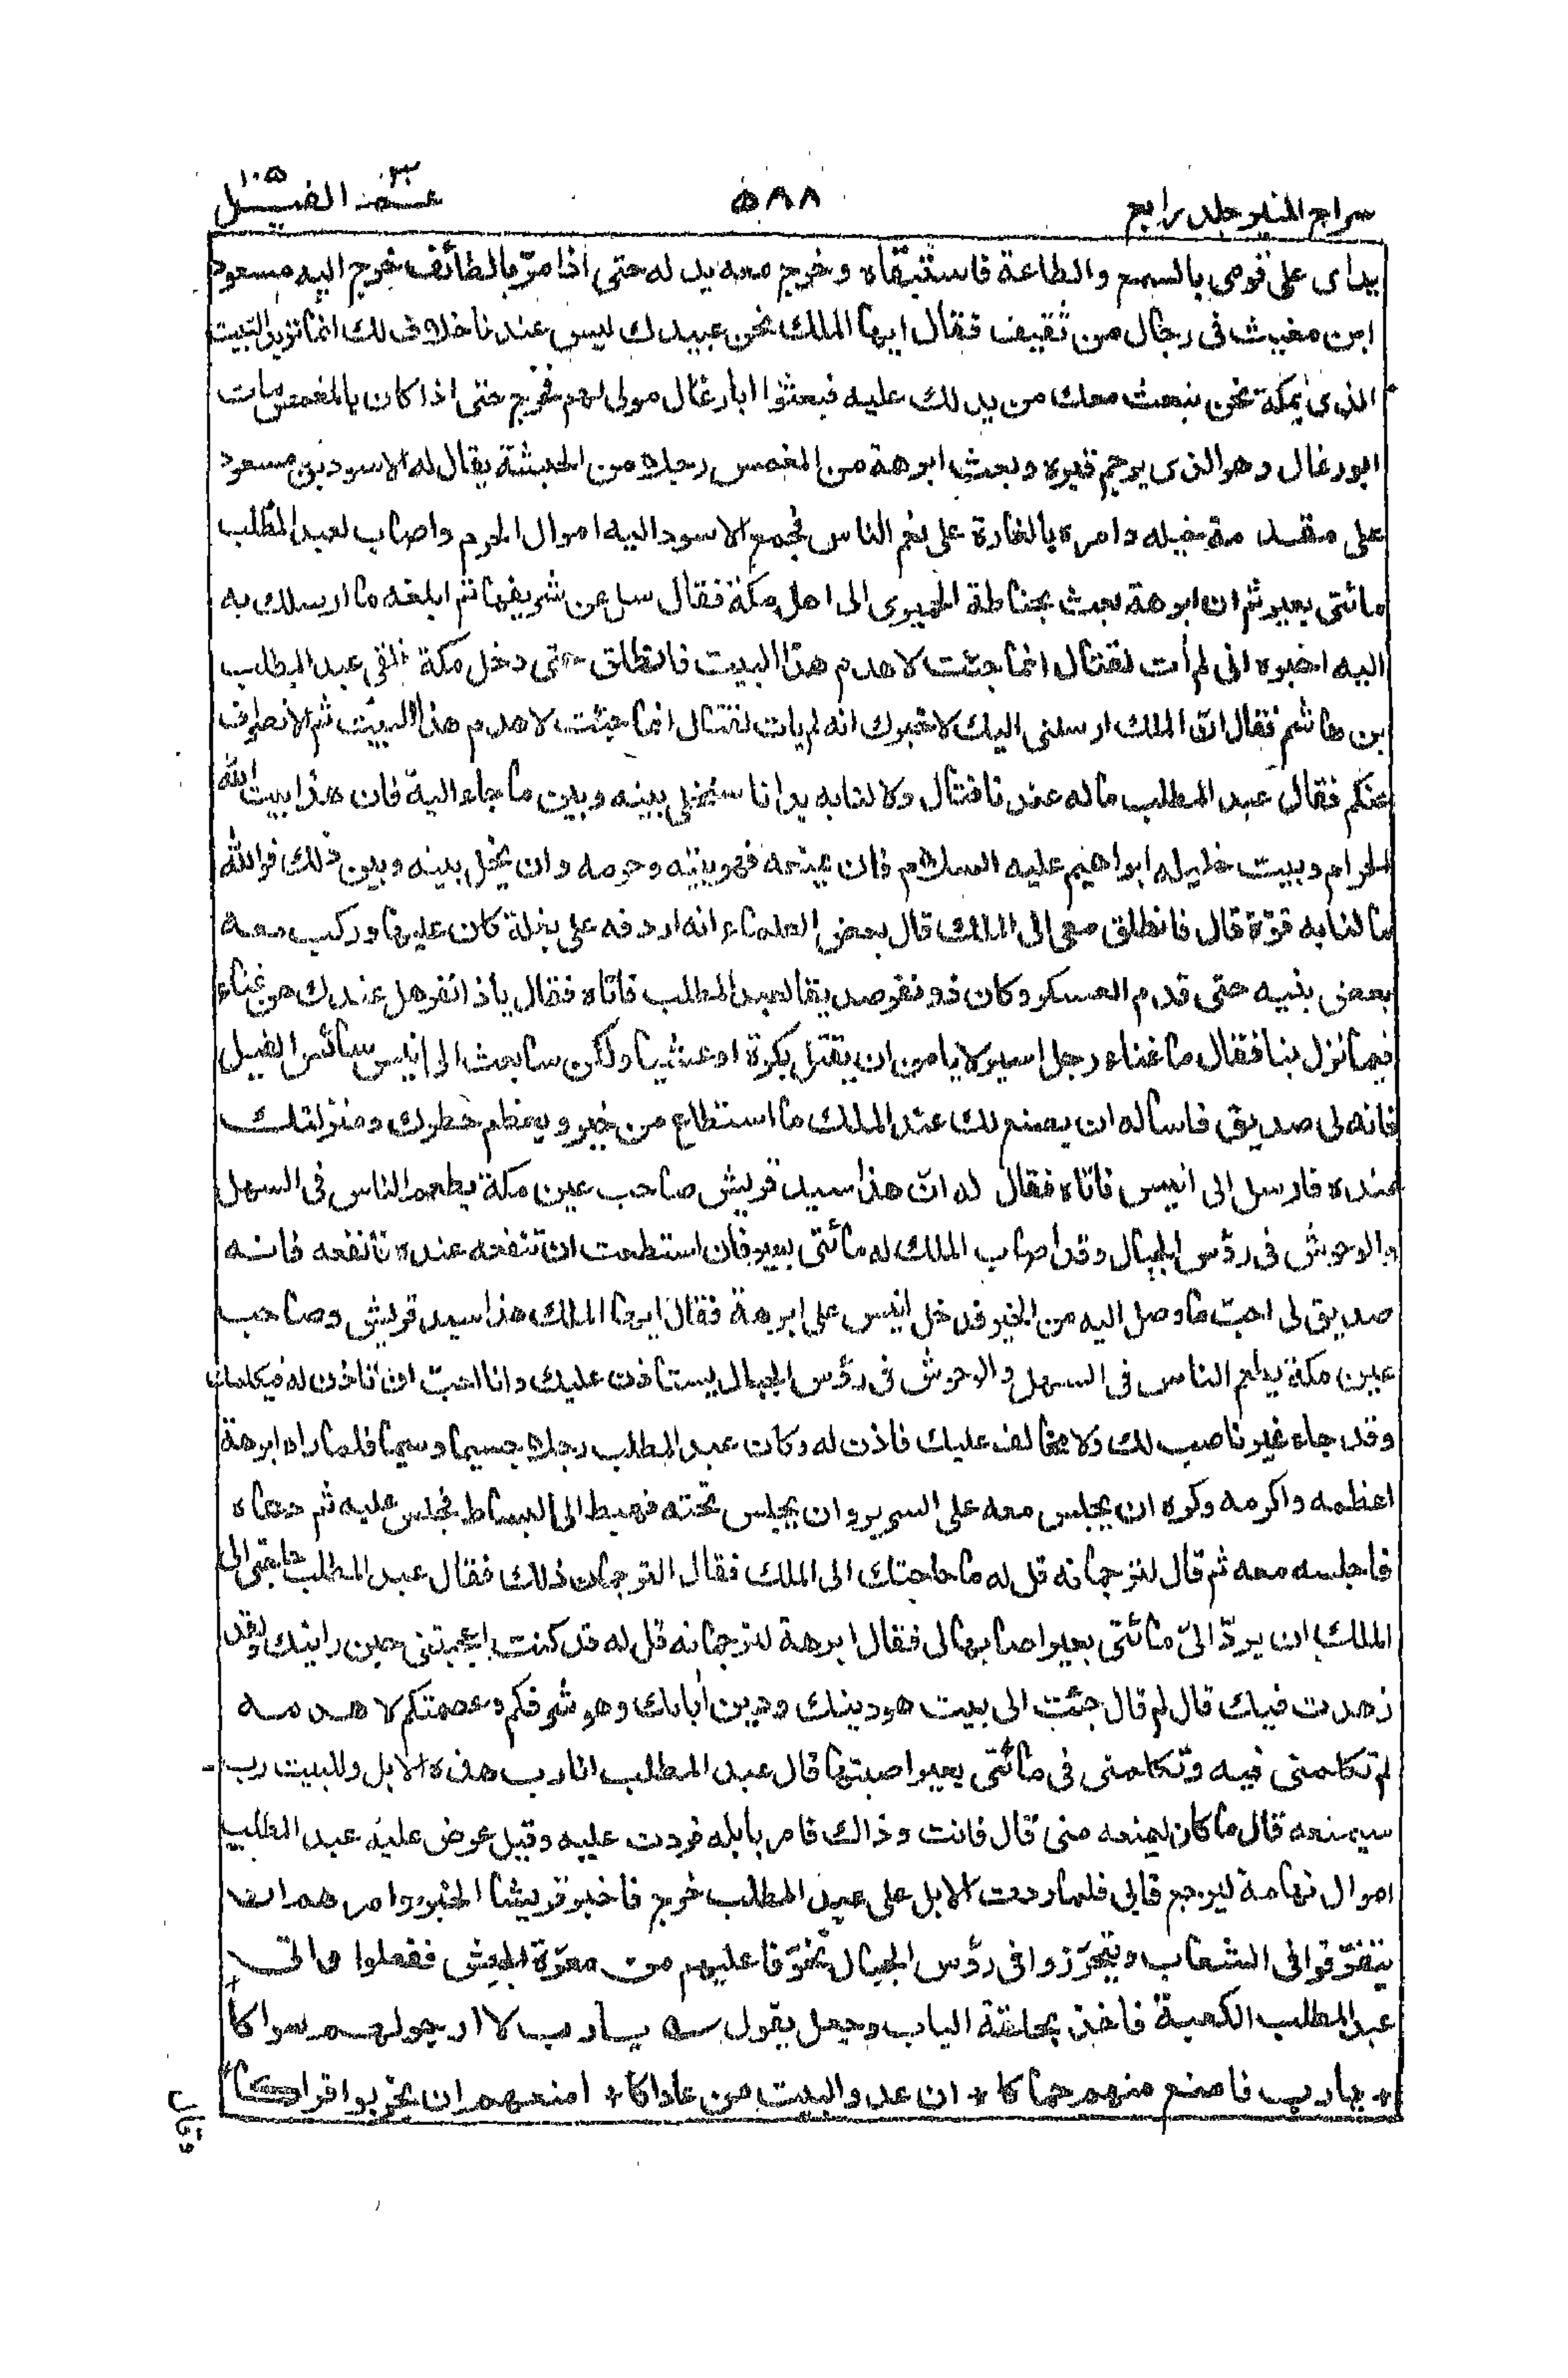 سراج المنير جلد رابع
٥٨٨
عمّ ٣٠ الفيل ١٠٥
يداى على قومى بالسمع والطاعة فاستبقاه وخرج معه يدله حتى اذا مرّ بالطائف خرج اليه مسعود
ابن مغيث فى رجال من ثقيف فقال ايها الملك نحن عبيدك ليس عندنا خلاف لك انما تريد البيت
الذى بمكة نحن نبعث معك من يدلك عليه فبعثوا ابا رغال مولى لهم فخرج حتى اذا كان بالمغمس مات
ابو رغال وهو الذى يرجم قبره وبعث ابرهة من المغمس رجلا من الحبشة يقال له الاسود بن مسعود
على مقدمة خيله وامره بالغارة على نعم الناس فجمع الاسود اليه اموال الحرم واصاب لعبد المطلب
مائتى بعير ثم ان ابرهة بعث بحناطة الحميرى الى اهل مكة فقال سل عن شريفها ثم ابلغه ما ارسلك به
اليه اخبره انى لم أت لقتال انما جئت لاهدم هذا البيت فانطلق حتى دخل مكة فلقى عبد المطلب
بن هاشم فقال انّ الملك ارسلنى اليك لاخبرك انه لم يات لقتال انما جئت لاهدم هذا البيت ثم الانصراف
عنكم فقال عبد المطلب ماله عندنا قتال ولا لنا به يد انا سنخلى بينه وبين ما جاء اليه فان هذا بيت الله
الحرام وبيت خليله ابراهيم عليه السلام فان يمنعه فهو بيته وحرمه وان يخل بينه وبين ذلك فوالله
ما لنا به قوّة قال فانطلق معى الى الملك قال بعض العلماء انه اردفه على بغلة كان عليها وركب معه
بعض بنيه حتى قدم العسكر وكان ذو نفر صديقا لعبد المطلب فاتاه فقال ياذا نفر هل عندك من غناء
فيما نزل بنا فقال ما غناء رجل اسير لا يامن ان يقتل بكرة او عشيا ولكن سابعث الى انيس سائس الفيل
فانه لى صديق فاساله ان يصنع لك عند الملك ما استطاع من خير ويعظم خطرك ومنزلتك
عنده فارسل الى انيس فاتاه فقال له انّ هذا سيد قريش صاحب عين مكة يطعم الناس فى السهل
والوحوش فى رؤس الجبال وقد اصاب الملك له مائتى بعير فان استطعت ان تنفعه عنده فانفعه فانه
صديق لى احبّ ما وصل اليه من الخير فدخل انيس على ابرهة فقال ايها الملك هذا سيد قريش وصاحب
عين مكة يطعم الناس فى السهل والوحوش فى رؤس الجبال يستاذن عليك وانا احبّ ان تاذن له فيكلمك
وقد جاء غير ناصب لك ولا مخالف عليك فاذن له وكان عبد المطلب رجلا جسيما وسيما فلما راه ابرهة
اعظمه واكرمه وكره ان يجلس معه على السرير وان يجلس تحته فهبط الى البساط فجلس عليه ثم دعاه
فاجلسه معه ثم قال لترجمانه قل له ما حاجتك الى الملك فقال الترجمان ذلك فقال عبد المطلب حاجتى الى
الملك ان يردّ الىّ مائتى بعير اصابها لى فقال ابرهة لترجمانه قل له قد كنت اعجبتنى حين رايتك ولقد
زهدت فيك قال لم قال جئت الى بيت هو دينك ودين أبائك وهو شرفكم وعصمتكم لاهدمه
لم تكلمنى فيه وتكلمنى فى مائتى بعير اصبتها قال عبد المطلب انا رب هذه الابل وللبيت رب
سيمنعه قال ما كان ليمنعه منى قال فانت وذاك فامر بابله فردت عليه وقيل عرض عليه عبد المطلب
اموال تهامة ليرجع فابى فلما ردت الابل على عبد المطلب خرج فاخبر قريشا الخبر وامرهم ان
يتفرّقوا فى الشعاب ويتحرّزوا فى رؤس الجبال تخوّفا عليهم من معرّة الجيش ففعلوا واتى
عبد المطلب الكعبة فاخذ بحلقة الباب وجعل يقول سه يا رب لا ارجو لهم سواكا
+ يا رب فامنع منهم حماكا + ان عدو البيت من عاداكا + امنعهم ان يخربوا قراكا
وقال